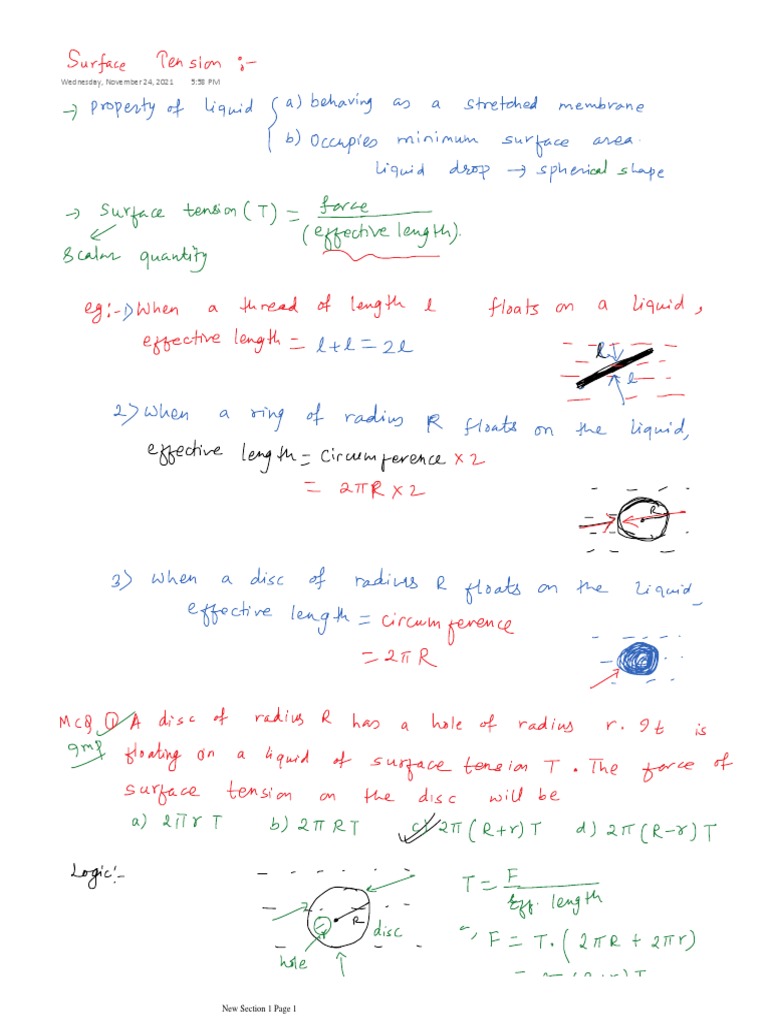 Surface Tension :-
Wednesday, November 24, 2021 5:58 PM
→ Property of liquid { a) behaving as a stretched membrane
b) Occupies minimum surface area.
liquid drop → spherical shape
→ Surface tension (T) = force / (effective length).
Scalar quantity
eg:- 1) When a thread of length l floats on a liquid,
effective length = l + l = 2l
l
l
2) When a ring of radius R floats on the liquid,
effective length = Circumference × 2
= 2πR × 2
R
3) When a disc of radius R floats on the liquid
effective length = circumference
= 2πR
MCQ ① A disc of radius R has a hole of radius r. It is
gmp floating on a liquid of surface tension T. The force of
surface tension on the disc will be
a) 2πrT b) 2πRT c) 2π(R+r)T d) 2π(R-r)T
Logic:-
T = F / Eff. length
r R disc
F = T.(2πR + 2πr)
hole
New Section 1 Page 1